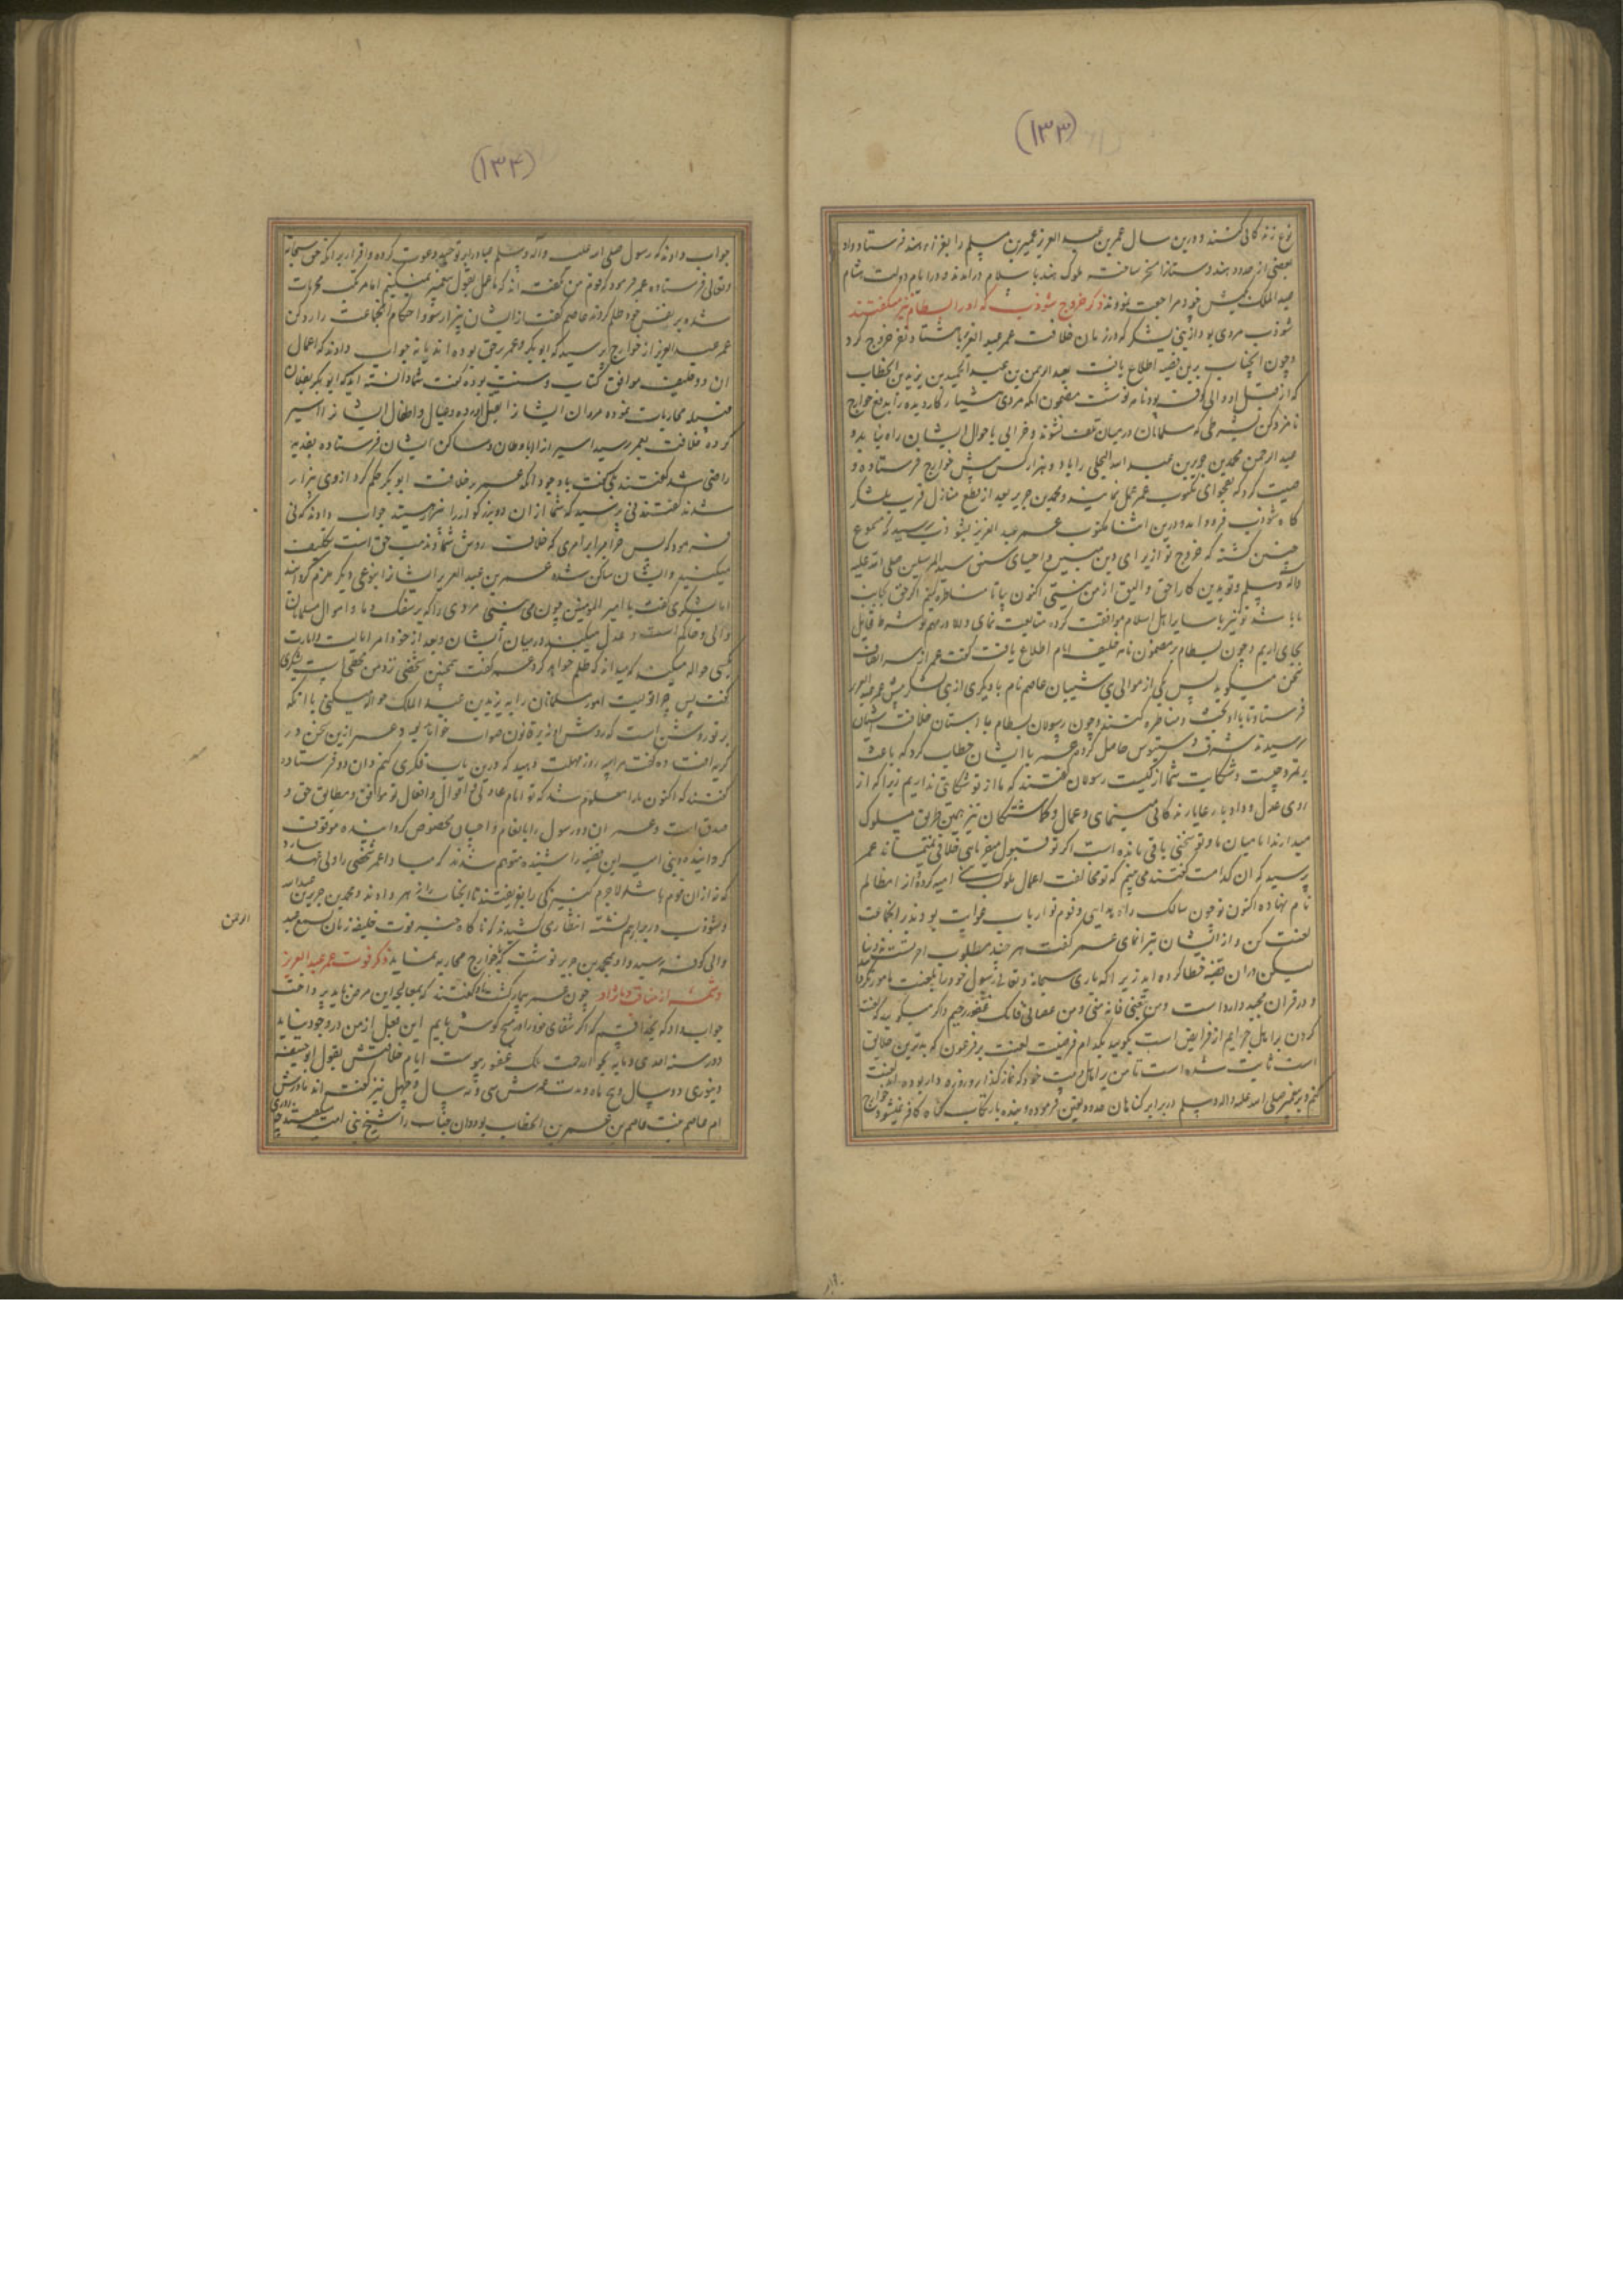 (۱۳۳)
نوع زندگانی کنند و درین سال عمر بن عبد العزیز عمیر بن مسلم را بغزاء هند فرستاد و او
بعضی از حدود هندوستانرا مسخر ساخته ملوک هند باسلام درآمدند و در ایام دولت هشام
عبد الملک بکیش خود مراجعت نمودند ذکر خروج شوذب که او را بسطام نیز میکفتند
شوذب مردی بود از بنی یشکر که در زمان خلافت عمر عبد العزیز با هشتاد نفر خروج کرد
و چون آنجناب برین قضیه اطلاع یافت بعبد الرحمن بن عبد الحمید بن زید بن الخطاب
که از قبل او والی کوفه بود نامه نوشت مضمون آنکه مردی هشیار کاردیده را بدفع خوارج
نامزد کن بشرطی که مسلمانان در میان تلف نشوند و خرابی باحوال ایشان راه نیابد و
عبد الرحمن محمد بن جریر بن عبد الله البجلی را با دو هزار کس پیش خوارج فرستاده و
وصیت کرد که بفحوای مکتوب عمر عمل نماید و محمد بن جریر بعد از قطع منازل قریب بلشکر
کاه شوذب فرود آمد و درین اثنا مکتوب عمر عبد العزیز بشوذب رسید که مسموع
چنین کشته که خروج تو از برای دین مبین و احیای سنن سید المرسلین صلی الله علیه
وآله وسلم و تو بدین کار احق و الیق از من نیستی اکنون بیا تا مناظره کنیم اکر حق بجانب
ما باشد تو نیز با سایر اهل اسلام موافقت کرده متابعت نمای و الا در مهم تو شرط تامل
بجای آریم و چون بسطام بر مضمون نامه خلیفه ایام اطلاع یافت کفت عمر از سر انصاف
سخن میکوید پس یکی از موالی بنی شیبان عاصم نام با دیکری از بنی یشکر پیش عمر عبد العزیز
فرستاد تا با او بحث و مناظره کنند و چون رسولان بسطام باستان خلافت آشیان
رسیدند شرف دستبوس حاصل کردند عمر با ایشان خطاب کرد که باعث
بر تمرد چیست و شکایت شما از کیست رسولان کفتند که ما از تو شکایتی نداریم زیرا که از
روی عدل و داد با رعایا زندکانی مینمای و عمال و کماشتکان نیز همین طریق مسلوک
میدارند اما میان ما و تو سخنی باقی مانده است اکر تو قبول میفرمایی خلافی نمیماند عمر
پرسید که آن کدامست کفتند می بینم که تو مخالفت اعمال ملوک بنی امیه کرده آنرا مظالم
نام نهاده اکنون تو چون سالک راه هدایی و قوم تو ارباب غوایت بودند بر آنجماعت
لعنت کن و از ایشان تبرا نمای عمر کفت هر چند مطلوب
لیکن در آن قضیه خطا کرده اید زیرا که باری سبحانه و تعالی رسول خود را بلعنت مامور نکردانید
و در قران مجید وارد است و من تبعنی فانه منی و من عصانی فانک غفور رحیم و اکر میکوید که لعنت
کردن بر اهل جرایم از فرایض است بکویید بکدام فریضه لعنت بر فرعون که بدترین خلایق
است ثابت شده است تا من بر اهل بیت خود که نماز کذار و روزه دار بوده اند لعنت
کنم و پیغمبر صلی الله علیه واله وسلم در برابر کناهان حدود تعیین فرموده و بنده بارتکاب کناه کافر نمیشود خوارج
(۱۳۴)
جواب دادند که رسول صلی الله علیه وآله وسلم عباد را بتوحید دعوت کرده و اقرار بر آنکه حق سبحانه
وتعالی فرستاده عمر فرمود که قوم من نکفته اند که ما عمل بقول پیغمبر نمیکنیم اما مرتکب محرمات
شده بر نفس خود ظلم کردند عاصم کفت از ایشان بیزار شو و احکام آنجماعت را رد کن
عمر عبد العزیز از خوارج پرسید که ابو بکر و عمر بر حق بوده اند یا نه جواب دادند که اعمال
آن دو خلیفه موافق کتاب و سنت بوده کفت شما دانسته اید که ابو بکر بفلان
قبیله محاربات نموده مردان ایشانرا بقتل آورده و عیال و اطفال ایشانرا اسیر
کرده خلافت بعمر رسید اسیرانرا باوطان و مساکن ایشان فرستاده بفدیه
راضی شد کفتند بلی کفت باوجود آنکه عمر بر خلافت ابو بکر حکم کرد از وی بیزار
شدند کفتند نی پرسید که شما از آن دو بزرکوار بیزار هستید جواب دادند که نی
فرمود که پس چرا مرا بر امری که خلاف روش شما و مذهب حق است تکلیف
میکنید و ایشان ساکن شده عمر بن عبد العزیز ایشانرا بنوعی دیکر ملزم کردانید
اما یشکری کفت یا امیر المومنین چون می بینی مردی را که بر سفک دما و اموال مسلمانان
والی و حاکم است و عدل میکند در میان ایشان و بعد از خود امر امامت و امارت
بکسی حواله میکند که میداند که ظلم خواهد کرد عمر کفت همچنین شخصی نزد من مخطی است یشکری
کفت پس چرا تولیت امور مسلمانان را به یزید بن عبد الملک حواله میکنی با آنکه
بر تو روشن است که روش او نه بر قانون صواب خواهد بود و عمر ازین سخن در
کریه افتاده کفت مرا سه روز مهلت دهید که درین باب فکری کنم و آن دو فرستاده
کفتند که اکنون ما را معلوم شد که تو امام عادلی و اقوال و افعال تو موافق و مطابق حق و
صدق است و عمر آن دو رسول را بانعام و احسان مخصوص کردانیده موقوف
کردانید و بنی امیه این قضیه را شنیده متوهم شدند که مبادا عمر شخصی را ولی عهد سازد
که نه از آن قوم باشد لاجرم کنیزکی را بفریفتند تا آنجناب را زهر داد و محمد بن جریر بن عبد الله
و شوذب در برابر هم نشسته انتظار می کشیدند که ناکاه خبر فوت خلیفه زمان بسمع عبد
الرحمن
والی کوفه رسید و او بمحمد بن جریر نوشت که با خوارج محاربه نماید ذکر فوت عمر عبد العزیز
و شمه از مناقب و مآثر او چون عمر بیمار کشت کفتند که بمعالجه این مرض باید پرداخت
جواب داد که بخدا قسم که اکر شفای خود را در مسح کوش یابم این فعل از من در وجود نیاید
و در سنه احدی و مایه بجوار رحمت ملک غفور پیوست ایام خلافتش بقول ابو حنیفه
دینوری دو سال و پنج ماه و مدت عمرش سی و نه سال و چهل نیز کفته اند مادرش
ام عاصم بنت عاصم بن عمر بن الخطاب بود و آن جناب را اشج بنی امیه میکفتند